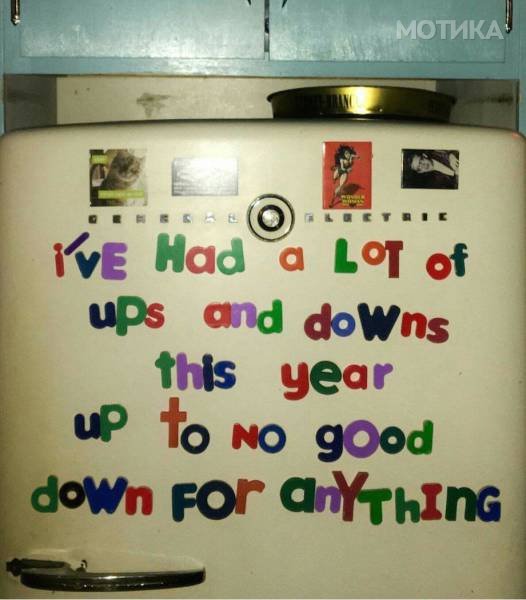 МОТИКА
WONDER WOMAN
GENERAL ELECTRIC
i'vE Had a LOT of
uPs and doWns
this year
uP to NO good
doWn FOr anYThING